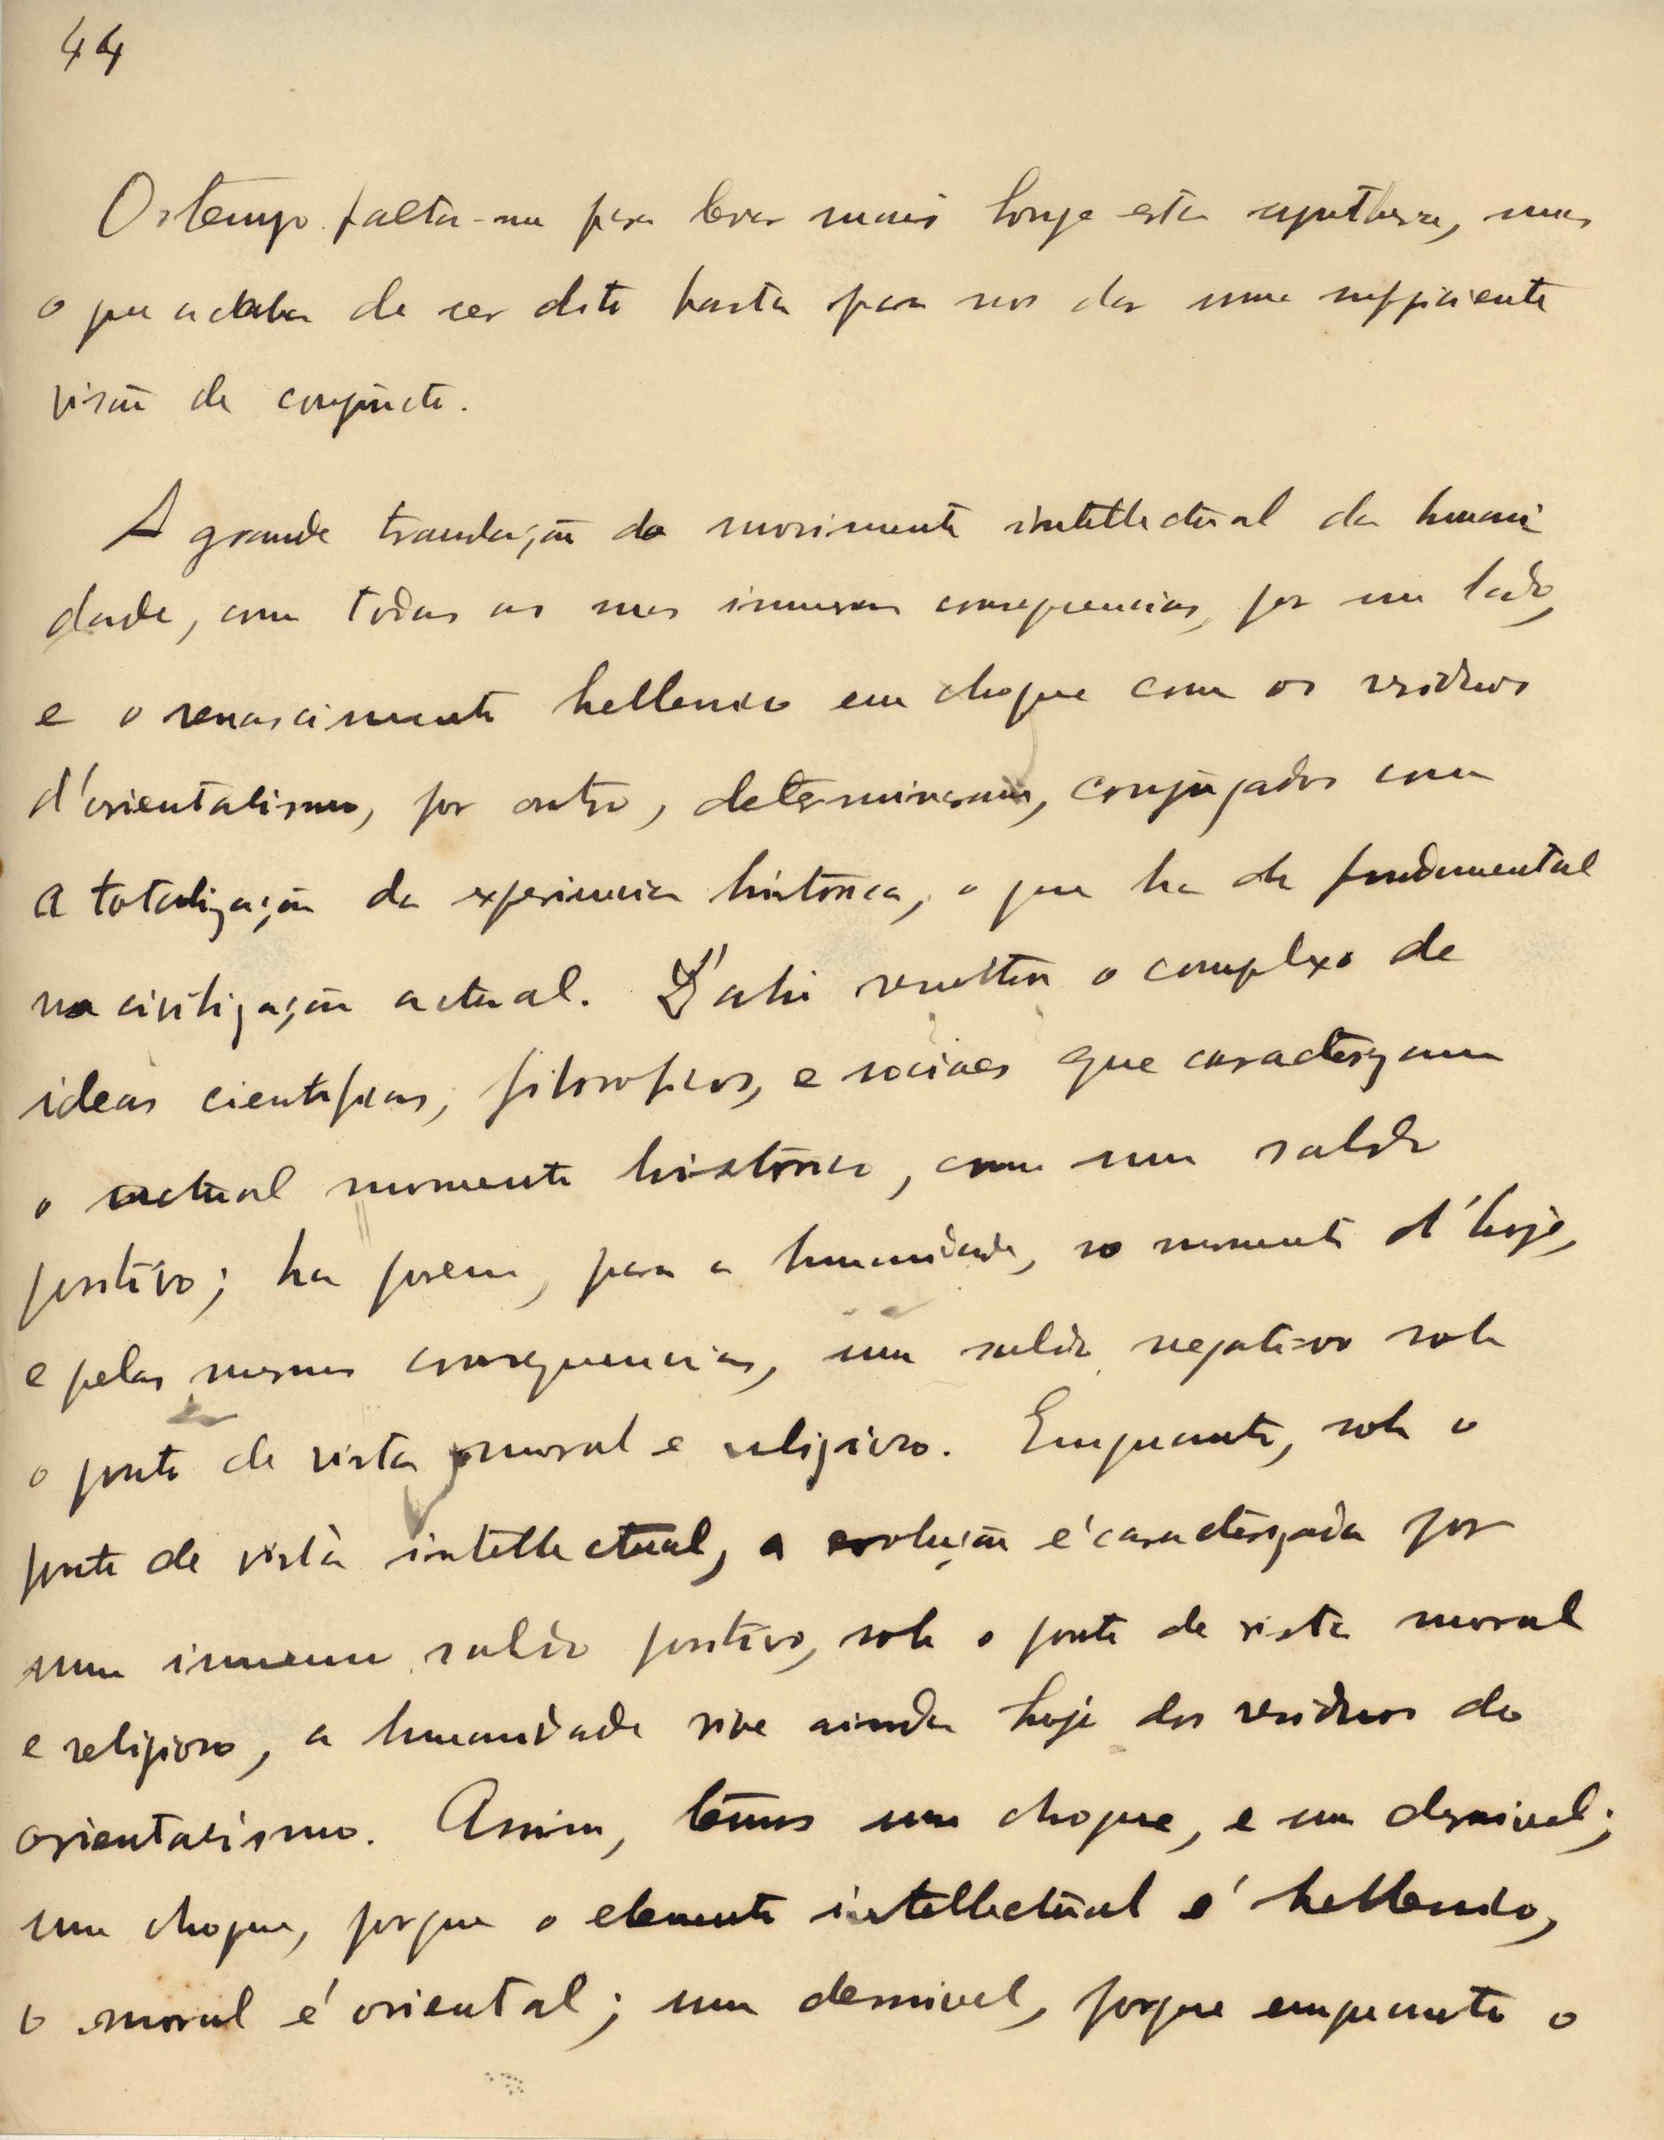 44
O tempo falta-me para levar mais longe esta synthese, mas
o que acaba de ser dito basta para nos dar uma sufficiente
visão de conjuncto.
A grande translação do movimento intellectual da humani
dade, com todas as suas immensas consequencias, por um lado,
e o renascimento hellenico em choque com os residuos
d'orientalismo, por outro, determinaram, conjugados com
a totalização da experiencia histórica, o que ha de fundamental
na civilização actual. D'ahi resulta o complexo de
ideas cientificas, filosoficas, e sociaes que caracterizam
o actual momento histórico, com um saldo
positivo; ha porem, para a humanidade, no momento d'hoje,
e pelas mesmas consequencias, um saldo negativo sob
o ponto de vista moral e religioso. Emquanto, sob o
ponto de vista intellectual, a evolução é caracterizada por
um immenso saldo positivo, sob o ponto de vista moral
e religioso, a humanidade vive ainda hoje dos residuos do
orientalismo. Assim, temos um choque, e um desnivel;
um choque, porque o elemento intellectual é hellenico,
o moral é oriental; um desnivel, porque emquanto o